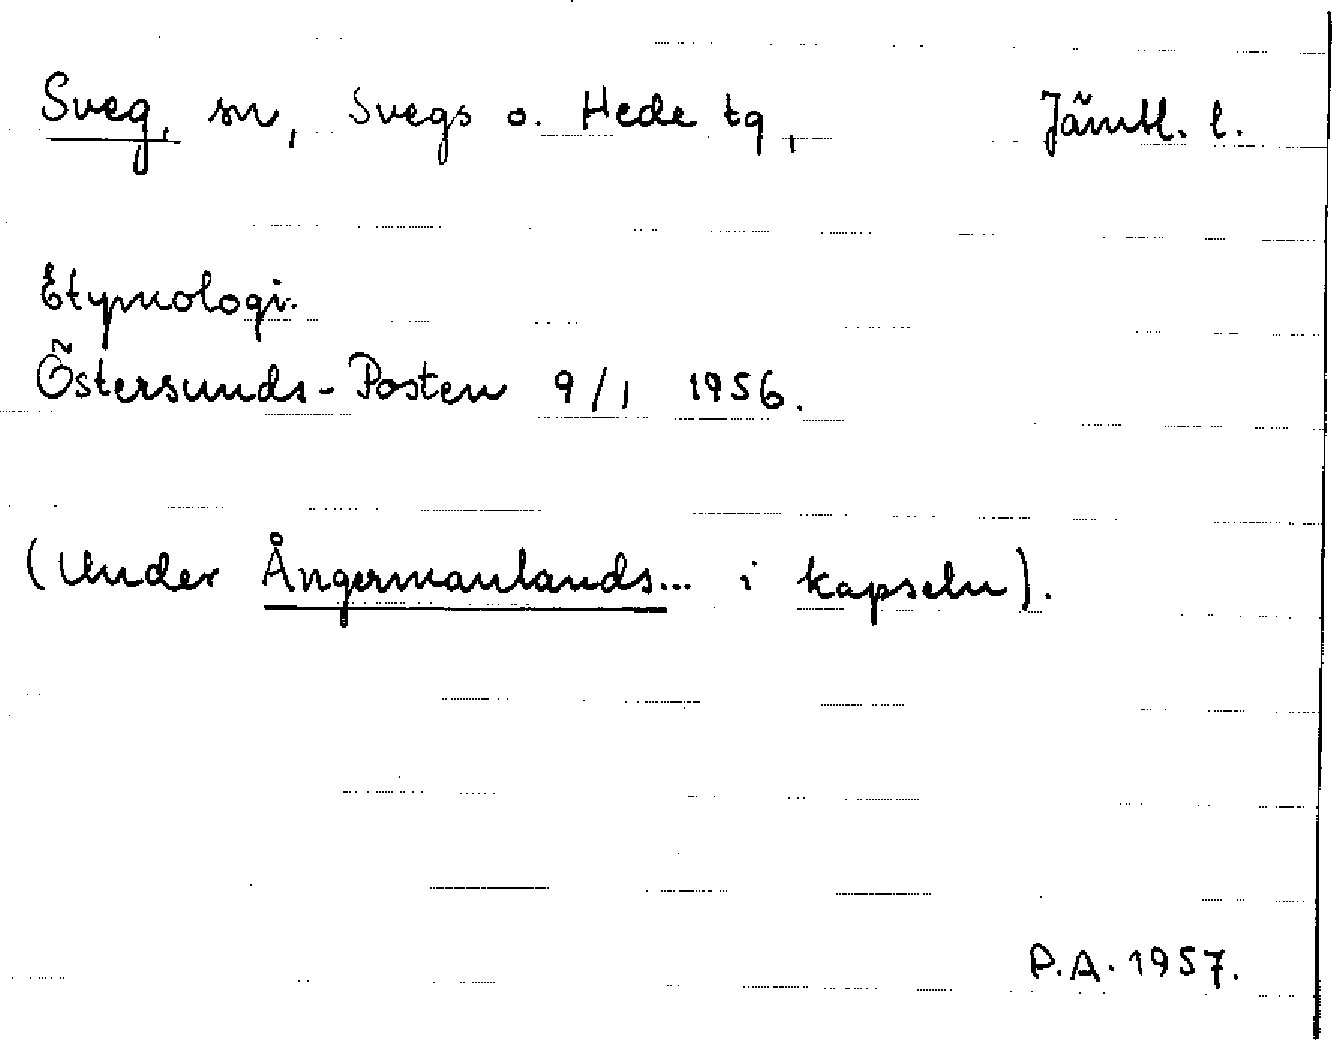 Sveg, sn, Svegs o. Hede tg, Jämtl. l.
Etymologi.
Östersunds-Posten 9/1 1956.
(Under Ångermanlands... i kapseln).
P.A. 1957.